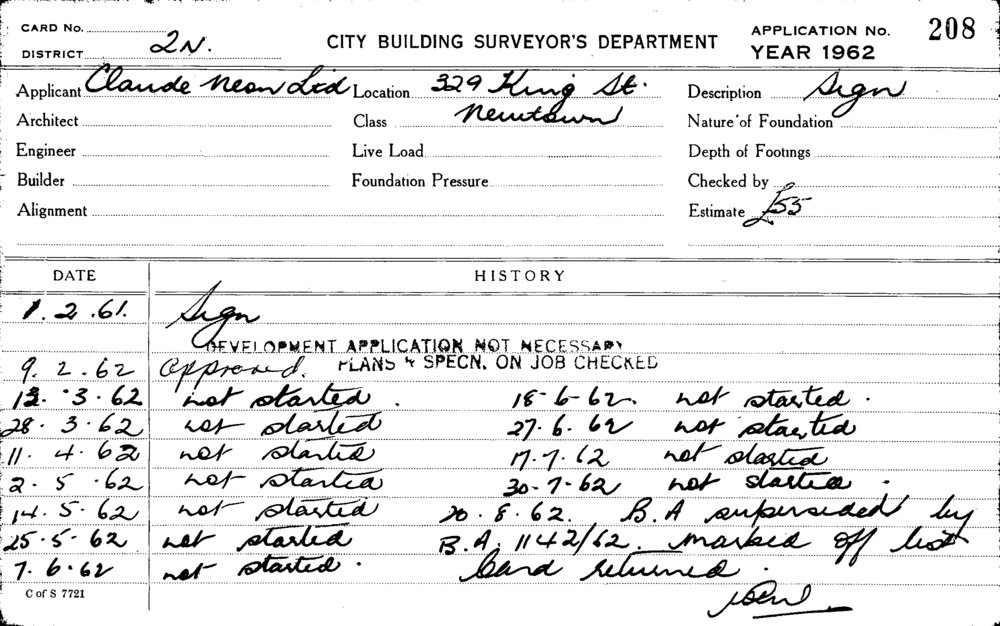 CARD No.
DISTRICT 2N.
CITY BUILDING SURVEYOR'S DEPARTMENT
APPLICATION No. 208
YEAR 1962
Applicant Claude Neon Ltd Location 329 King St. Description Sign
Architect Class Newtown Nature of Foundation
Engineer Live Load Depth of Footings
Builder Foundation Pressure Checked by
Alignment Estimate £55
DATE HISTORY
1.2.61. Sign
DEVELOPMENT APPLICATION NOT NECESSARY
9.2.62 Approved. PLANS & SPECN. ON JOB CHECKED
13.3.62 not started. 18-6-62. not started.
28.3.62 not started 27.6.62 not started
11.4.62 not started 17.7.62 not started
2.5.62 not started 30-7-62 not started.
14.5.62 not started 20.8.62. B.A superseded by
25.5.62 not started B.A. 1142/62. marked off list
7.6.62 not started. Card returned.
C of S 7721